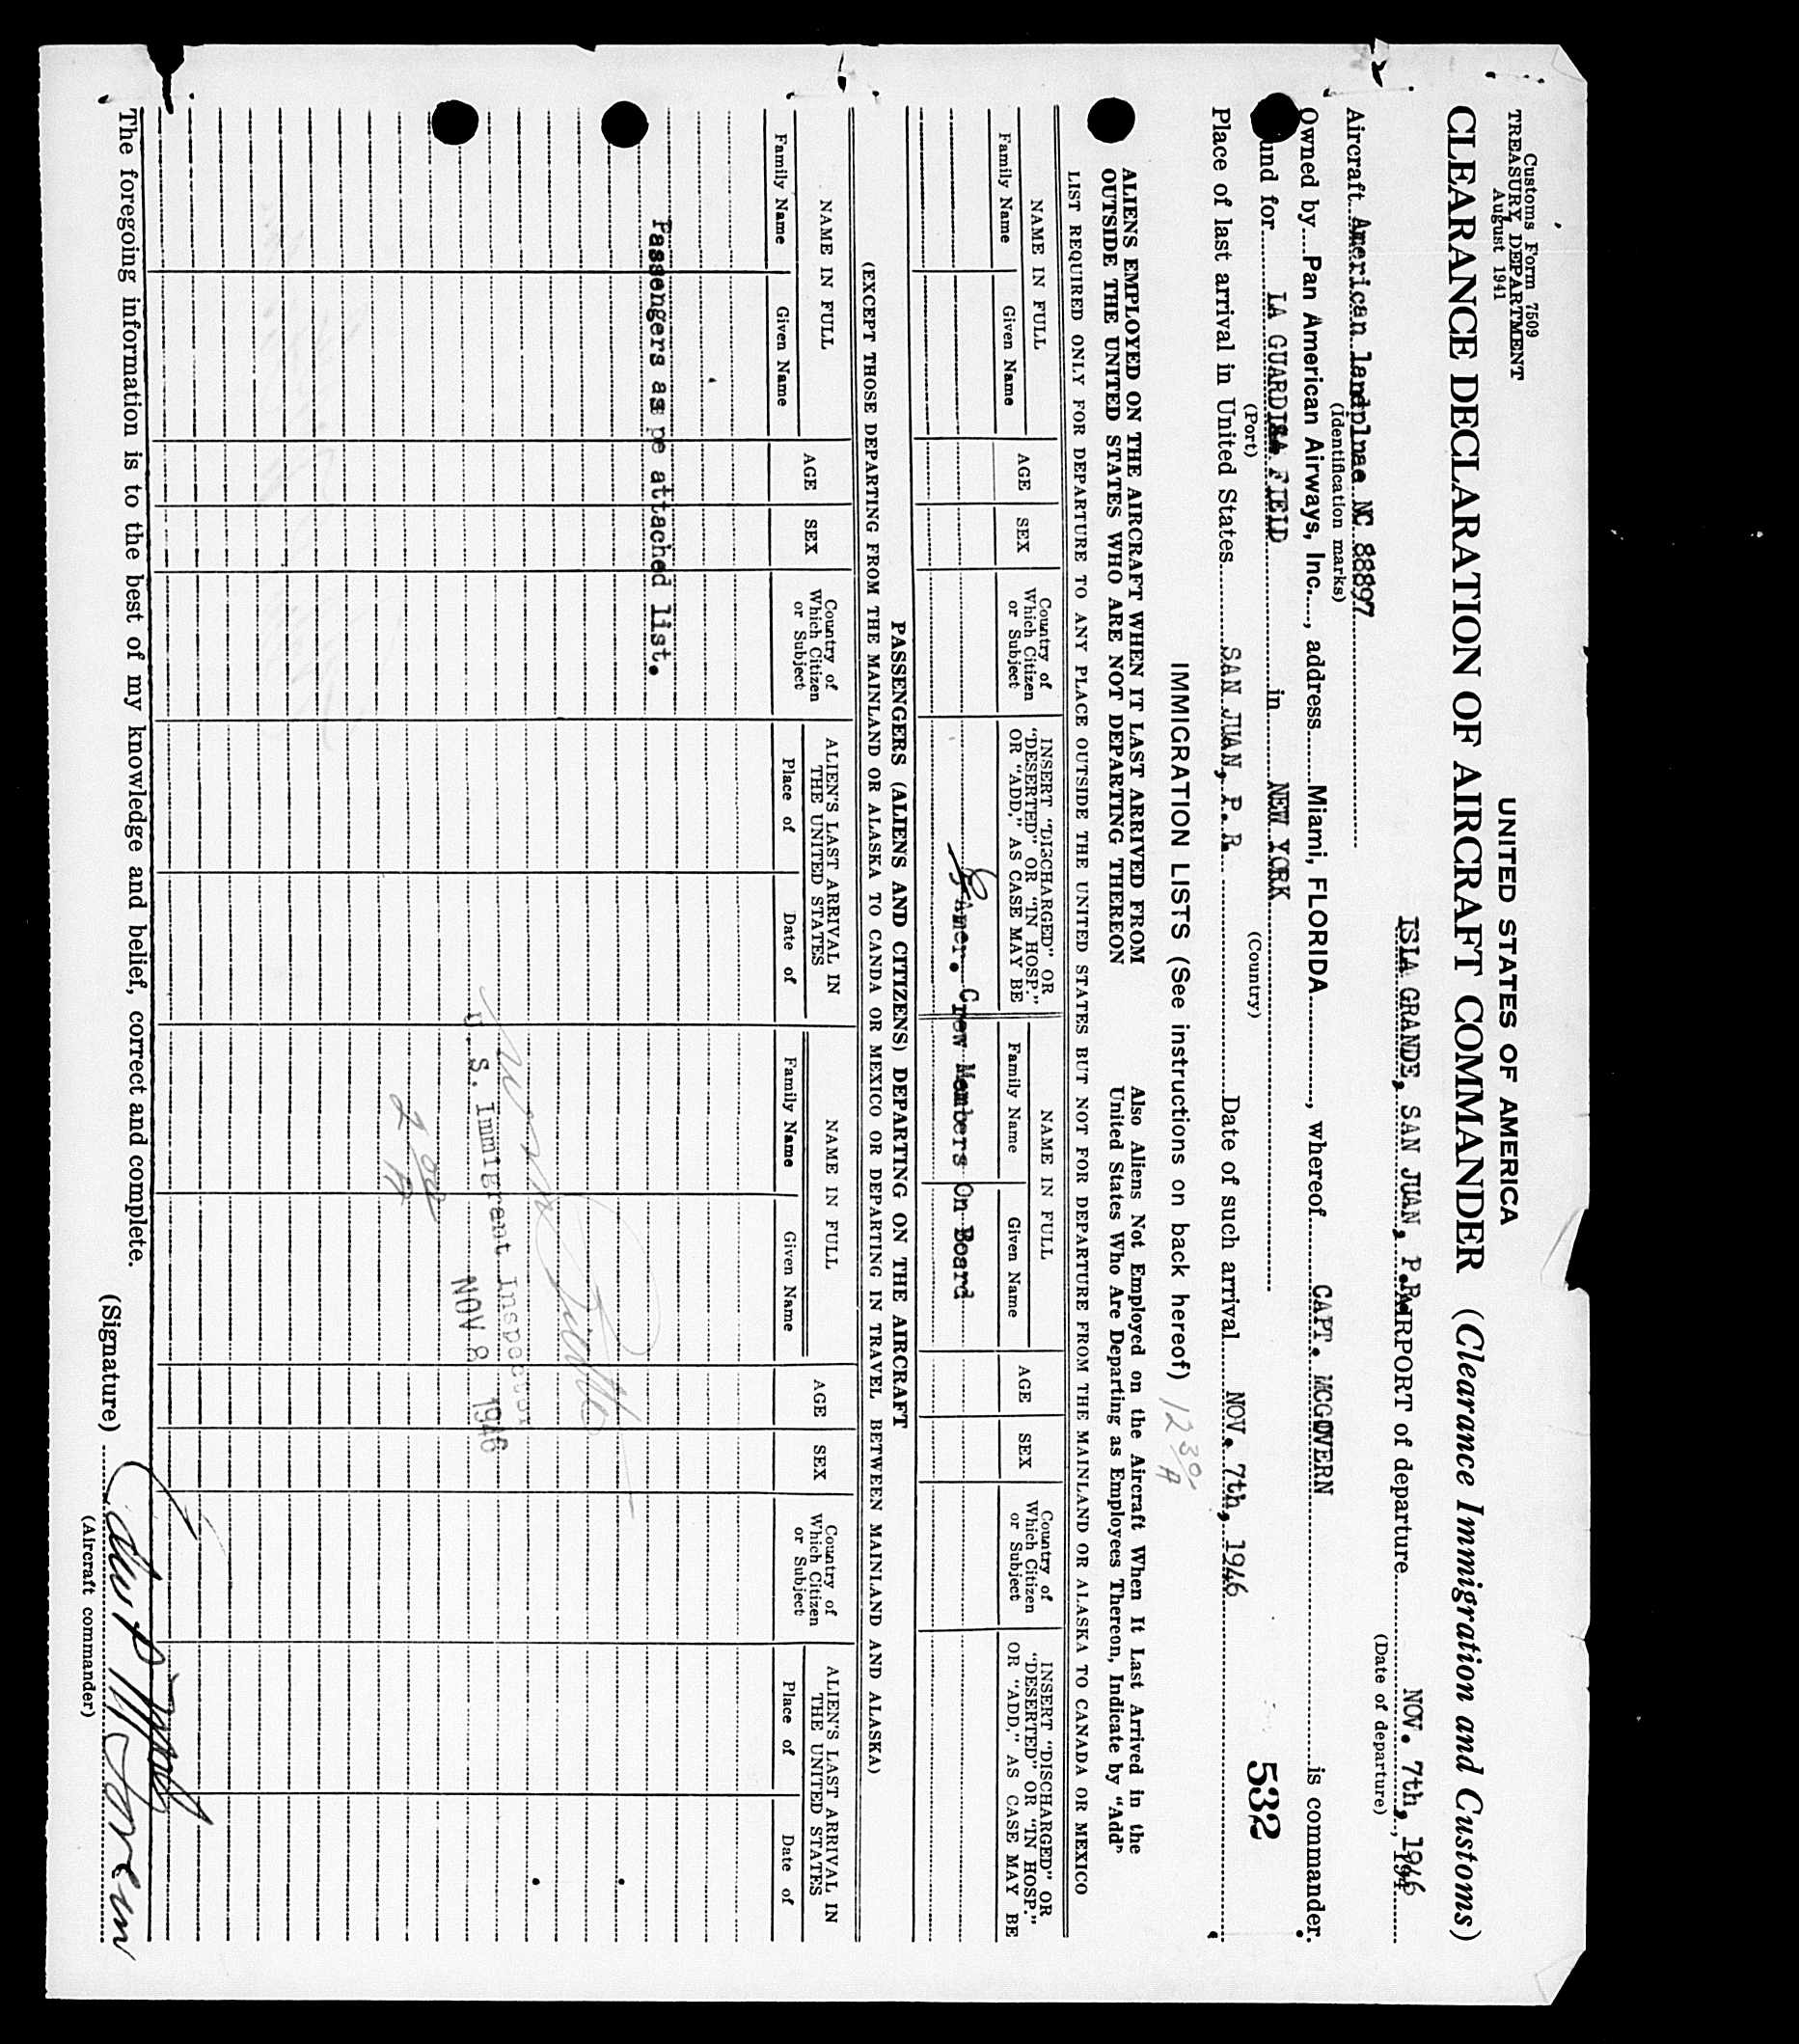 Customs Form 7509
TREASURY DEPARTMENT
August 1941
UNITED STATES OF AMERICA
CLEARANCE DECLARATION OF AIRCRAFT COMMANDER (Clearance Immigration and Customs)
ISLA GRANDE, SAN JUAN, P.R. AIRPORT of departure NOV. 7th, 1946, 194
(Date of departure)
Aircraft American landplnae NC 88897
(Identification marks)
Owned by Pan American Airways, Inc., address Miami, FLORIDA, whereof CAPT. MCGOVERN is commander.
und for LA GUARDIA FIELD in NEW YORK
(Port) (Country)
532
Place of last arrival in United States SAN JUAN, P. R. Date of such arrival NOV. 7th, 1946
IMMIGRATION LISTS (See instructions on back hereof) 12 30/A
ALIENS EMPLOYED ON THE AIRCRAFT WHEN IT LAST ARRIVED FROM
OUTSIDE THE UNITED STATES WHO ARE NOT DEPARTING THEREON
Also Aliens Not Employed on the Aircraft When It Last Arrived in the
United States Who Are Departing as Employees Thereon, Indicate by "Add"
LIST REQUIRED ONLY FOR DEPARTURE TO ANY PLACE OUTSIDE THE UNITED STATES BUT NOT FOR DEPARTURE FROM THE MAINLAND OR ALASKA TO CANADA OR MEXICO
NAME IN FULL
Family Name Given Name
AGE
SEX
Country of
Which Citizen
or Subject
INSERT "DISCHARGED" OR
"DESERTED" OR "IN HOSP."
OR "ADD," AS CASE MAY BE
NAME IN FULL
Family Name Given Name
AGE
SEX
Country of
Which Citizen
or Subject
INSERT "DISCHARGED" OR
"DESERTED" OR "IN HOSP."
OR "ADD," AS CASE MAY BE
8 Amer. Crew Members On Board
PASSENGERS (ALIENS AND CITIZENS) DEPARTING ON THE AIRCRAFT
(EXCEPT THOSE DEPARTING FROM THE MAINLAND OR ALASKA TO CANDA OR MEXICO OR DEPARTING IN TRAVEL BETWEEN MAINLAND AND ALASKA)
NAME IN FULL
Family Name Given Name
AGE
SEX
Country of
Which Citizen
or Subject
ALIEN'S LAST ARRIVAL IN
THE UNITED STATES
Place of Date of
NAME IN FULL
Family Name Given Name
AGE
SEX
Country of
Which Citizen
or Subject
ALIEN'S LAST ARRIVAL IN
THE UNITED STATES
Place of Date of
Passengers as pe attached list.
U. S. Immigrant Inspector
NOV 8 1946
2 00/A
The foregoing information is to the best of my knowledge and belief, correct and complete.
(Signature)
(Aircraft commander)